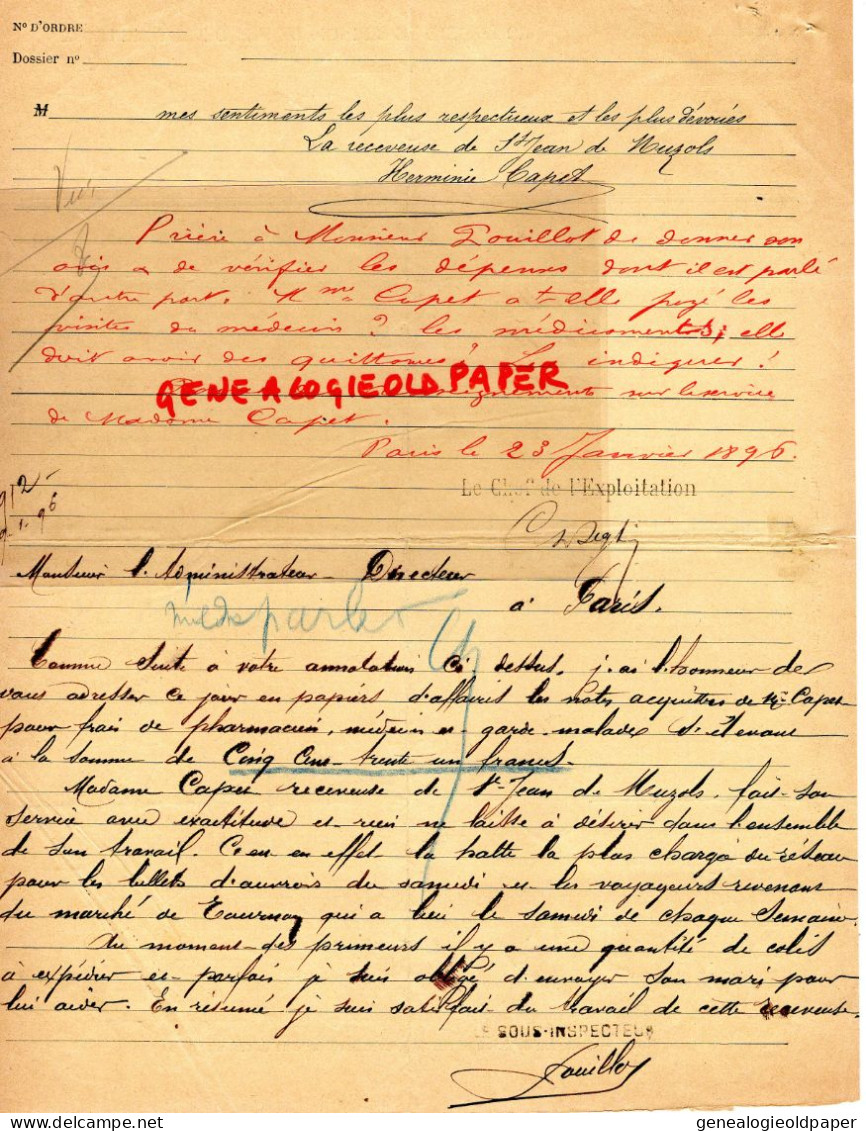 N° D'ORDRE
Dossier n°
M mes sentiments les plus respectueux et les plus dévoués
La receveuse de St Jean de Muzols
Herminie Capet
Prière à Monsieur Fouillot de donner son
avis & de vérifier les dépenses dont il est parlé
d'autre part. Mme Capet a-t-elle payé les
visites du médecin ? les médicaments ; elle
doit avoir des quittances ? Les indiquer !
GENEALOGIEOLDPAPER
renseignements sur le service
de Madame Capet.
Paris le 23 Janvier 1896.
Le Chef de l'Exploitation
Monsieur l'Administrateur Directeur
à Paris.
Comme suite à votre annotation ci dessus, j'ai l'honneur de
vous adresser ce jour en papiers d'affaires les notes acquittées de Me Capet
pour frais de pharmacien, médecin et garde-malades s'élevant
à la somme de Cinq cent trente un francs.
Madame Capet receveuse de St Jean de Muzols, fait son
service avec exactitude et rien ne laisse à désirer dans l'ensemble
de son travail. C'est en effet la halte la plus chargée du réseau
pour les billets d'aurrois du samedi et les voyageurs revenant
du marché de Tournon qui a lieu le samedi de chaque semaine.
Au moment des primeurs il y a une quantité de colis
à expédier et parfois je suis obligé d'envoyer son mari pour
lui aider. En résumé je suis satisfait du travail de cette receveuse.
LE SOUS-INSPECTEUR
Fouillot
genealogieoldpaper